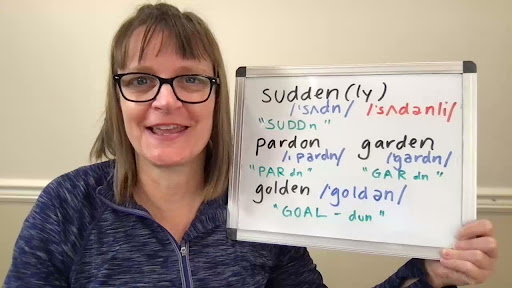 sudden(ly)
/ˈsʌdn/ /ˈsʌdənli/
"SUDDn"
pardon garden
/ˈpardn/ /ˈgardn/
"PAR dn" "GAR dn"
golden /ˈgoldən/
"GOAL - dun"